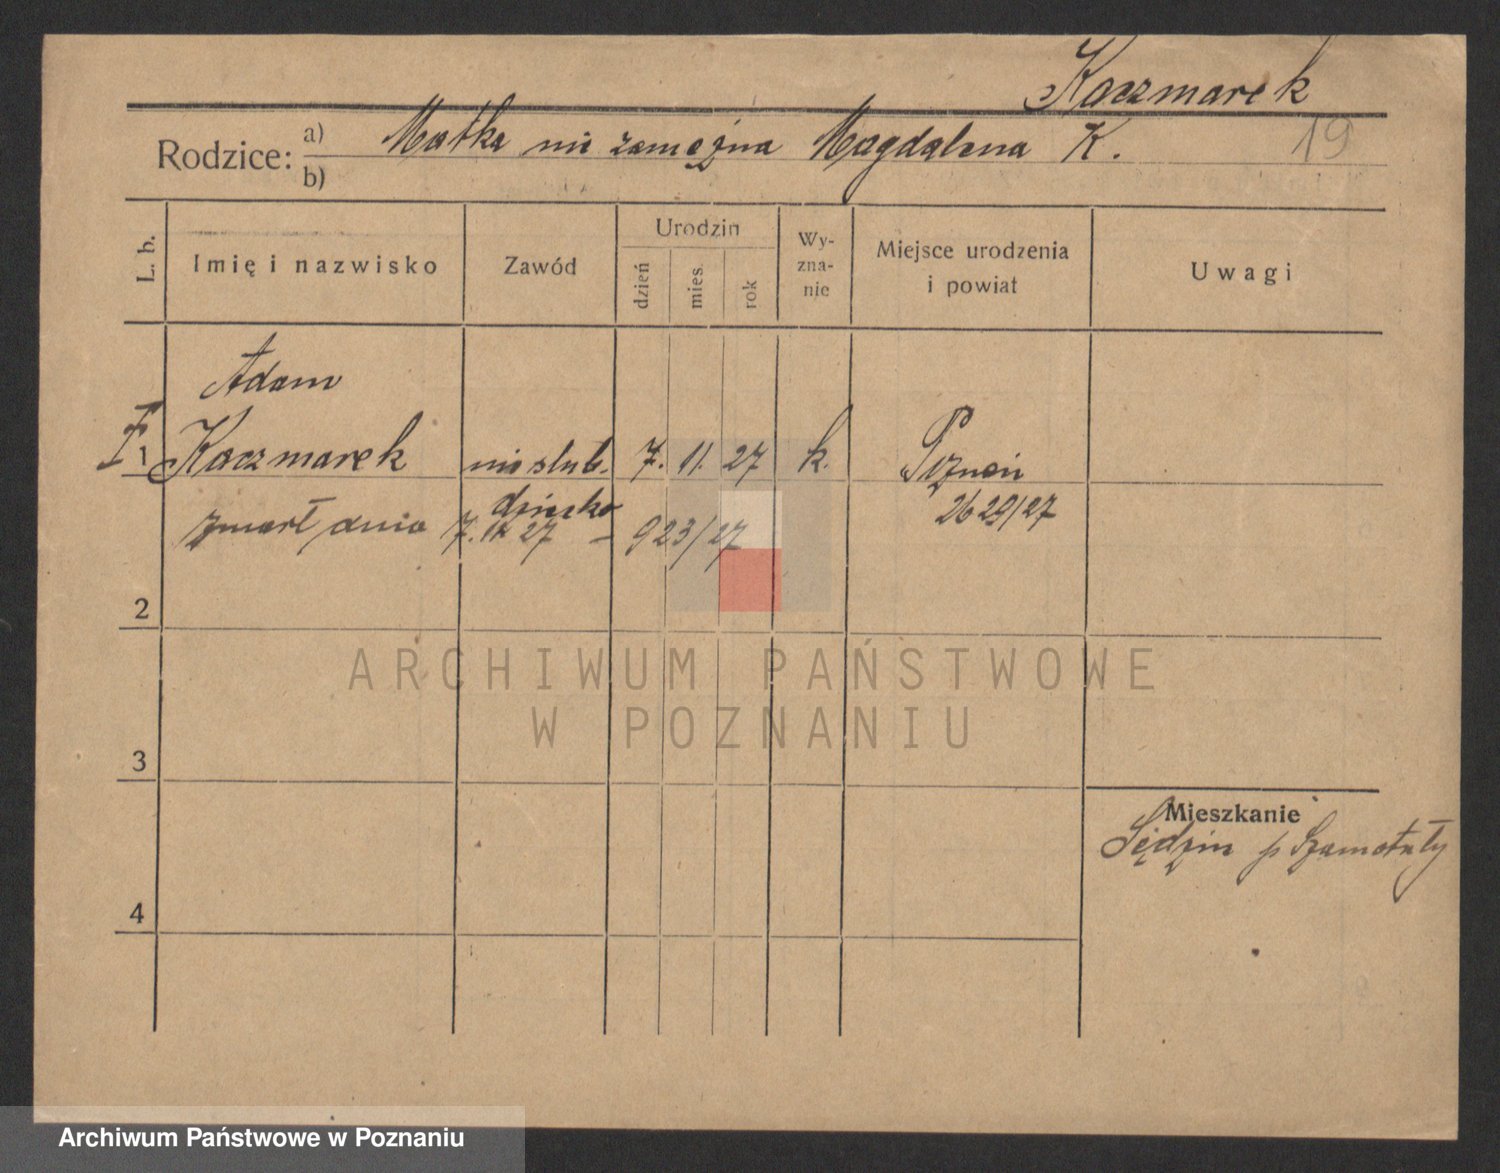 Kaczmarek
Rodzice: a) Matka nie zamężna Magdalena K. 19
b)
L. b. Imię i nazwisko Zawód Urodzin dzień mies. rok Wy-zna-nie Miejsce urodzenia i powiat Uwagi
Adam
1 Kaczmarek nieślub. 7. 11. 27 k. Poznań
dziecko 2629/27
zmarł dnia 7. 27 – 923/27
2
ARCHIWUM PAŃSTWOWE
W POZNANIU
3
Mieszkanie
Sędzin p Szamotuły
4
Archiwum Państwowe w Poznaniu